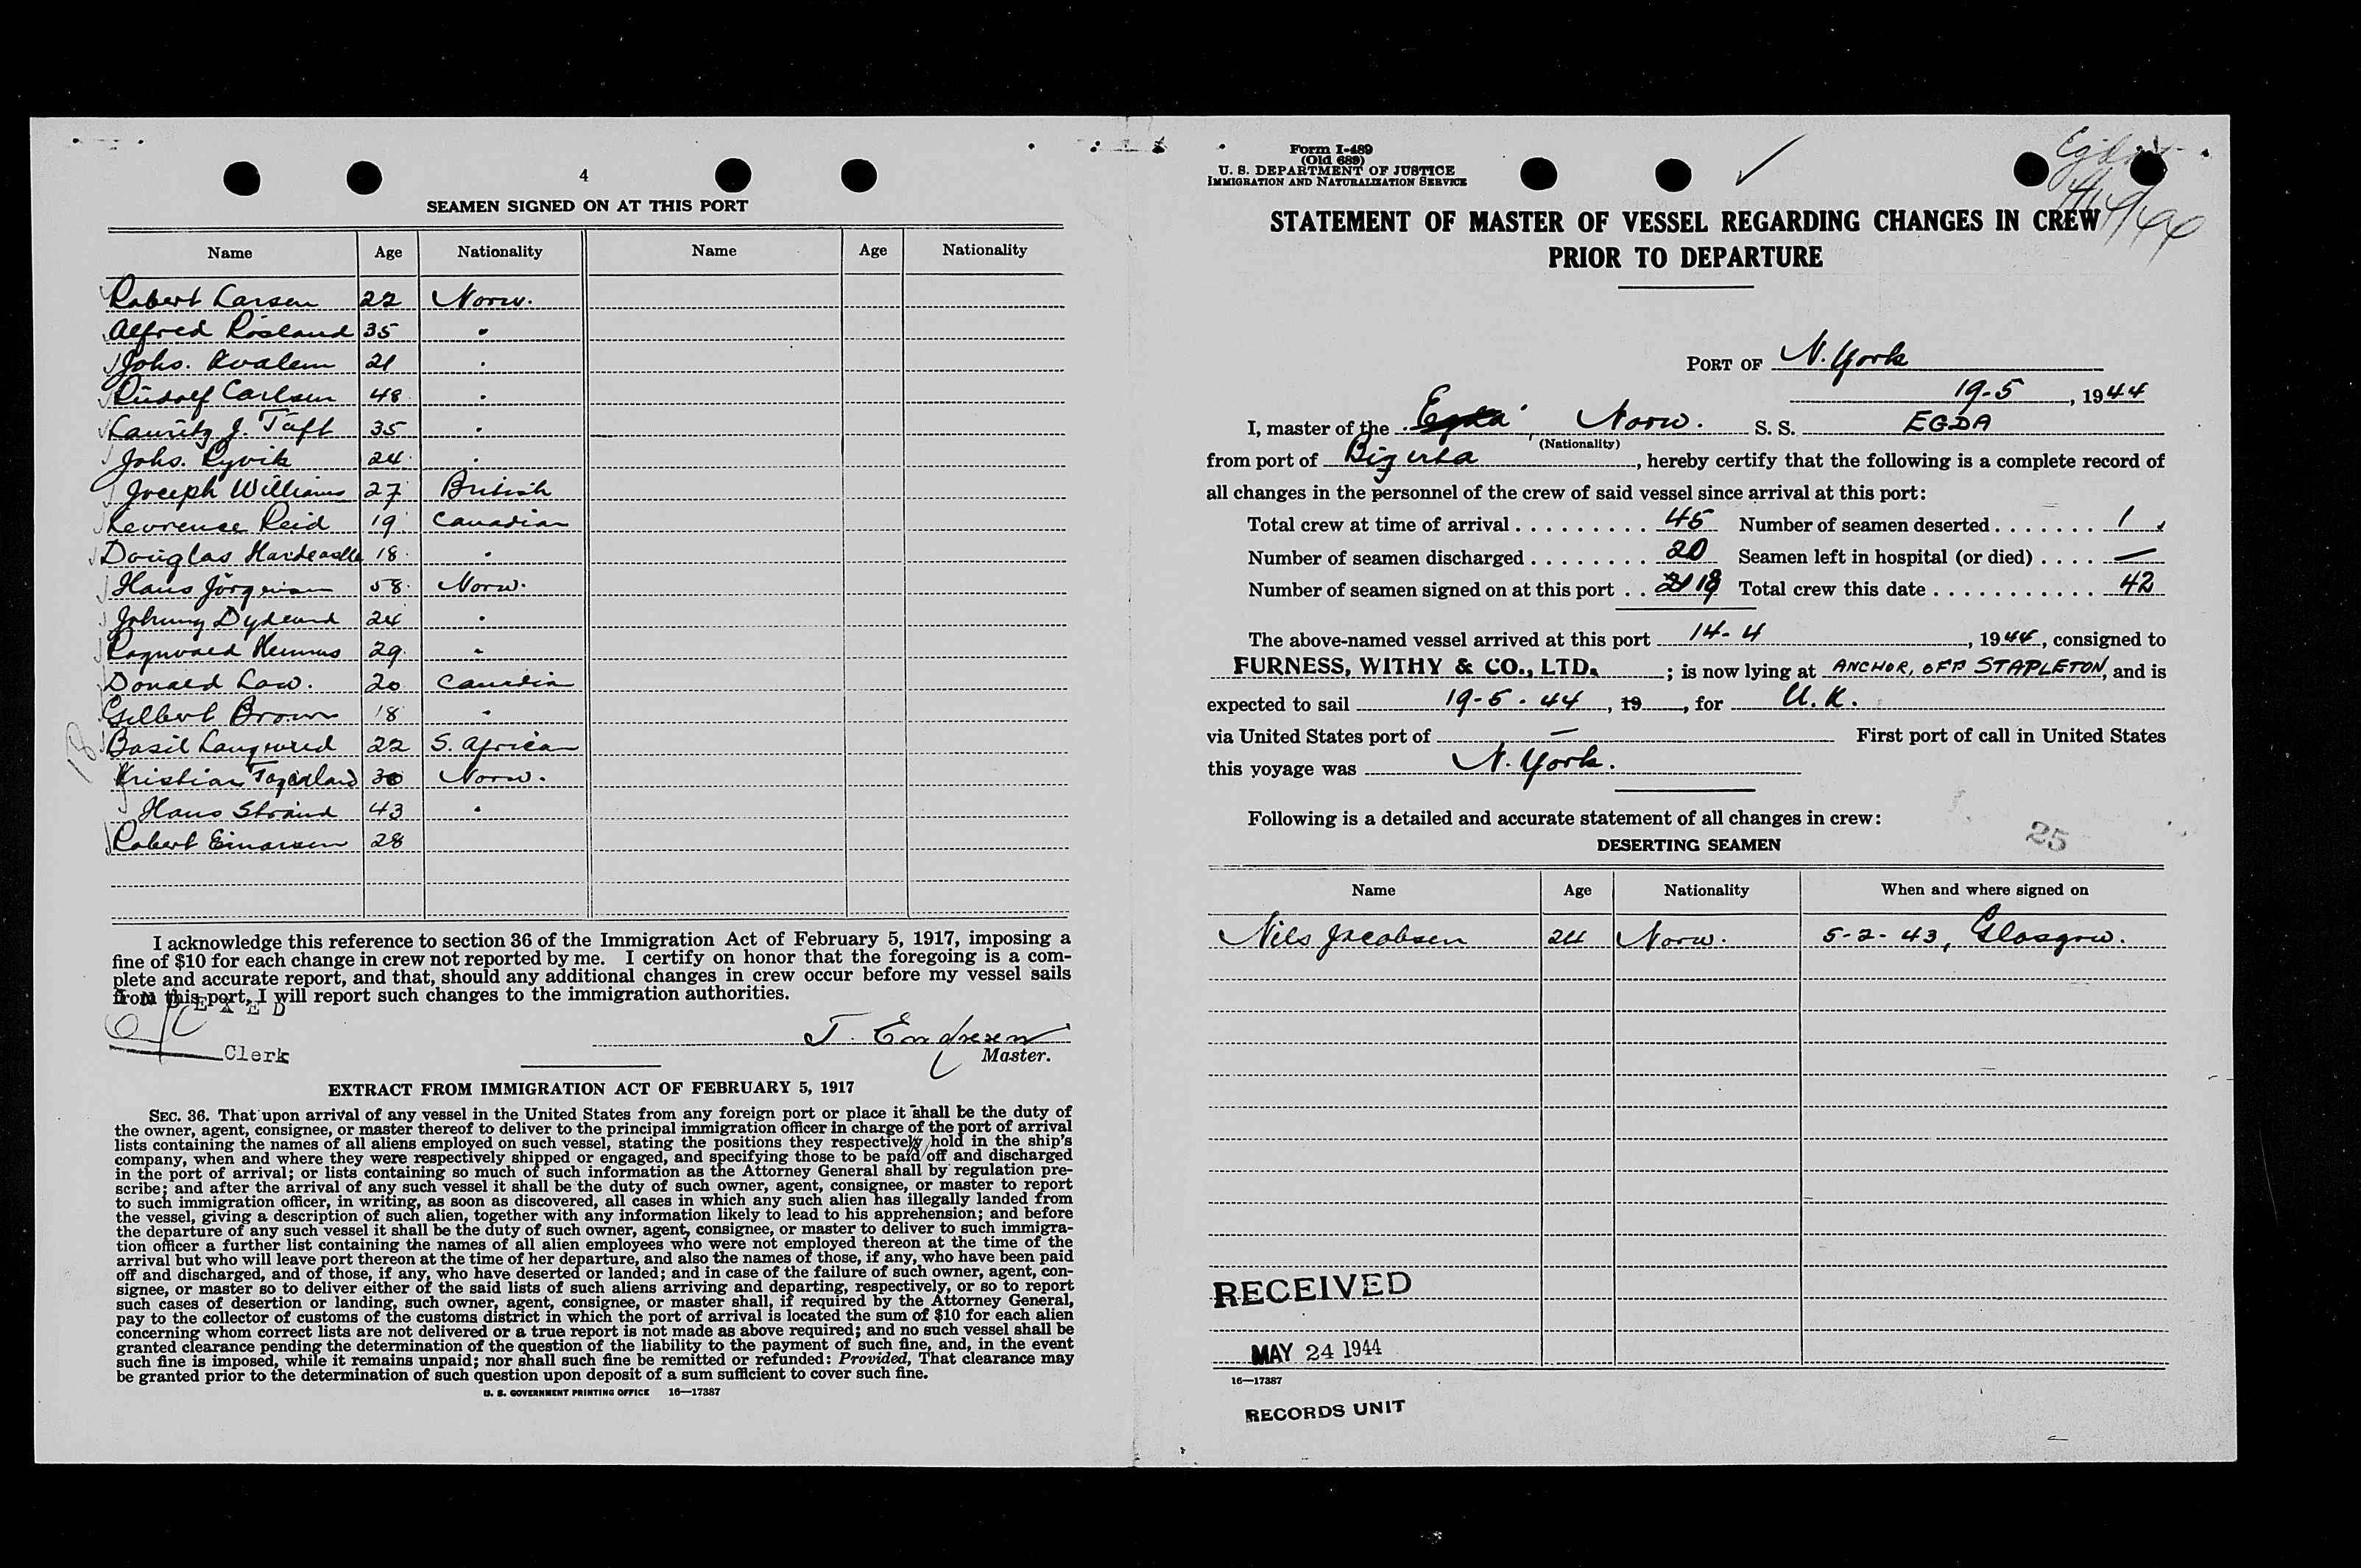 4
SEAMEN SIGNED ON AT THIS PORT
Name Age Nationality Name Age Nationality
Robert Larsen 22 Norw.
Alfred Rosland 35 "
Johs. Kvalem 21 "
Rudolf Carlsen 48 "
Lauritz J. Taft 35 "
Johs. Ryvik 24 "
Joceph Williams 27 British
Levrence Reid 19 Canadian
Douglas Hardcastle 18 "
Hans Jörgensen 58 Norw.
Johnny 24 "
Ragnvald 29 "
Donald Law. 20 Canadia
Gilbert Brown 18 "
Basil 22 S. African
18
Kristian 30 Norw.
Hans Strand 43 "
Robert Einarsen 28
I acknowledge this reference to section 36 of the Immigration Act of February 5, 1917, imposing a
fine of $10 for each change in crew not reported by me. I certify on honor that the foregoing is a com-
plete and accurate report, and that, should any additional changes in crew occur before my vessel sails
from this port, I will report such changes to the immigration authorities.
INDEXED
Clerk
T. Endresen
Master.
EXTRACT FROM IMMIGRATION ACT OF FEBRUARY 5, 1917
SEC. 36. That upon arrival of any vessel in the United States from any foreign port or place it shall be the duty of
the owner, agent, consignee, or master thereof to deliver to the principal immigration officer in charge of the port of arrival
lists containing the names of all aliens employed on such vessel, stating the positions they respectively hold in the ship's
company, when and where they were respectively shipped or engaged, and specifying those to be paid off and discharged
in the port of arrival; or lists containing so much of such information as the Attorney General shall by regulation pre-
scribe; and after the arrival of any such vessel it shall be the duty of such owner, agent, consignee, or master to report
to such immigration officer, in writing, as soon as discovered, all cases in which any such alien has illegally landed from
the vessel, giving a description of such alien, together with any information likely to lead to his apprehension; and before
the departure of any such vessel it shall be the duty of such owner, agent, consignee, or master to deliver to such immigra-
tion officer a further list containing the names of all alien employees who were not employed thereon at the time of the
arrival but who will leave port thereon at the time of her departure, and also the names of those, if any, who have been paid
off and discharged, and of those, if any, who have deserted or landed; and in case of the failure of such owner, agent, con-
signee, or master so to deliver either of the said lists of such aliens arriving and departing, respectively, or so to report
such cases of desertion or landing, such owner, agent, consignee, or master shall, if required by the Attorney General,
pay to the collector of customs of the customs district in which the port of arrival is located the sum of $10 for each alien
concerning whom correct lists are not delivered or a true report is not made as above required; and no such vessel shall be
granted clearance pending the determination of the question of the liability to the payment of such fine, and, in the event
such fine is imposed, while it remains unpaid; nor shall such fine be remitted or refunded: Provided, That clearance may
be granted prior to the determination of such question upon deposit of a sum sufficient to cover such fine.
U. S. GOVERNMENT PRINTING OFFICE 16—17387
Form I-489
(Old 689)
U. S. DEPARTMENT OF JUSTICE
IMMIGRATION AND NATURALIZATION SERVICE
Egda
4/14/44
STATEMENT OF MASTER OF VESSEL REGARDING CHANGES IN CREW
PRIOR TO DEPARTURE
PORT OF N. York
19-5, 1944
I, master of the Egda Norw. S. S. EGDA
(Nationality)
from port of Bizerta, hereby certify that the following is a complete record of
all changes in the personnel of the crew of said vessel since arrival at this port:
Total crew at time of arrival 45 Number of seamen deserted 1
Number of seamen discharged 20 Seamen left in hospital (or died) —
Number of seamen signed on at this port 21 18 Total crew this date 42
The above-named vessel arrived at this port 14-4, 1944, consigned to
FURNESS, WITHY & CO., LTD.; is now lying at ANCHOR, OFF STAPLETON, and is
expected to sail 19-5-44, 19, for U.K.
via United States port of — First port of call in United States
this voyage was N. York.
Following is a detailed and accurate statement of all changes in crew:
25
DESERTING SEAMEN
Name Age Nationality When and where signed on
Nils Jacobsen 24 Norw. 5-2-43, Glasgow.
RECEIVED
MAY 24 1944
16—17387
RECORDS UNIT